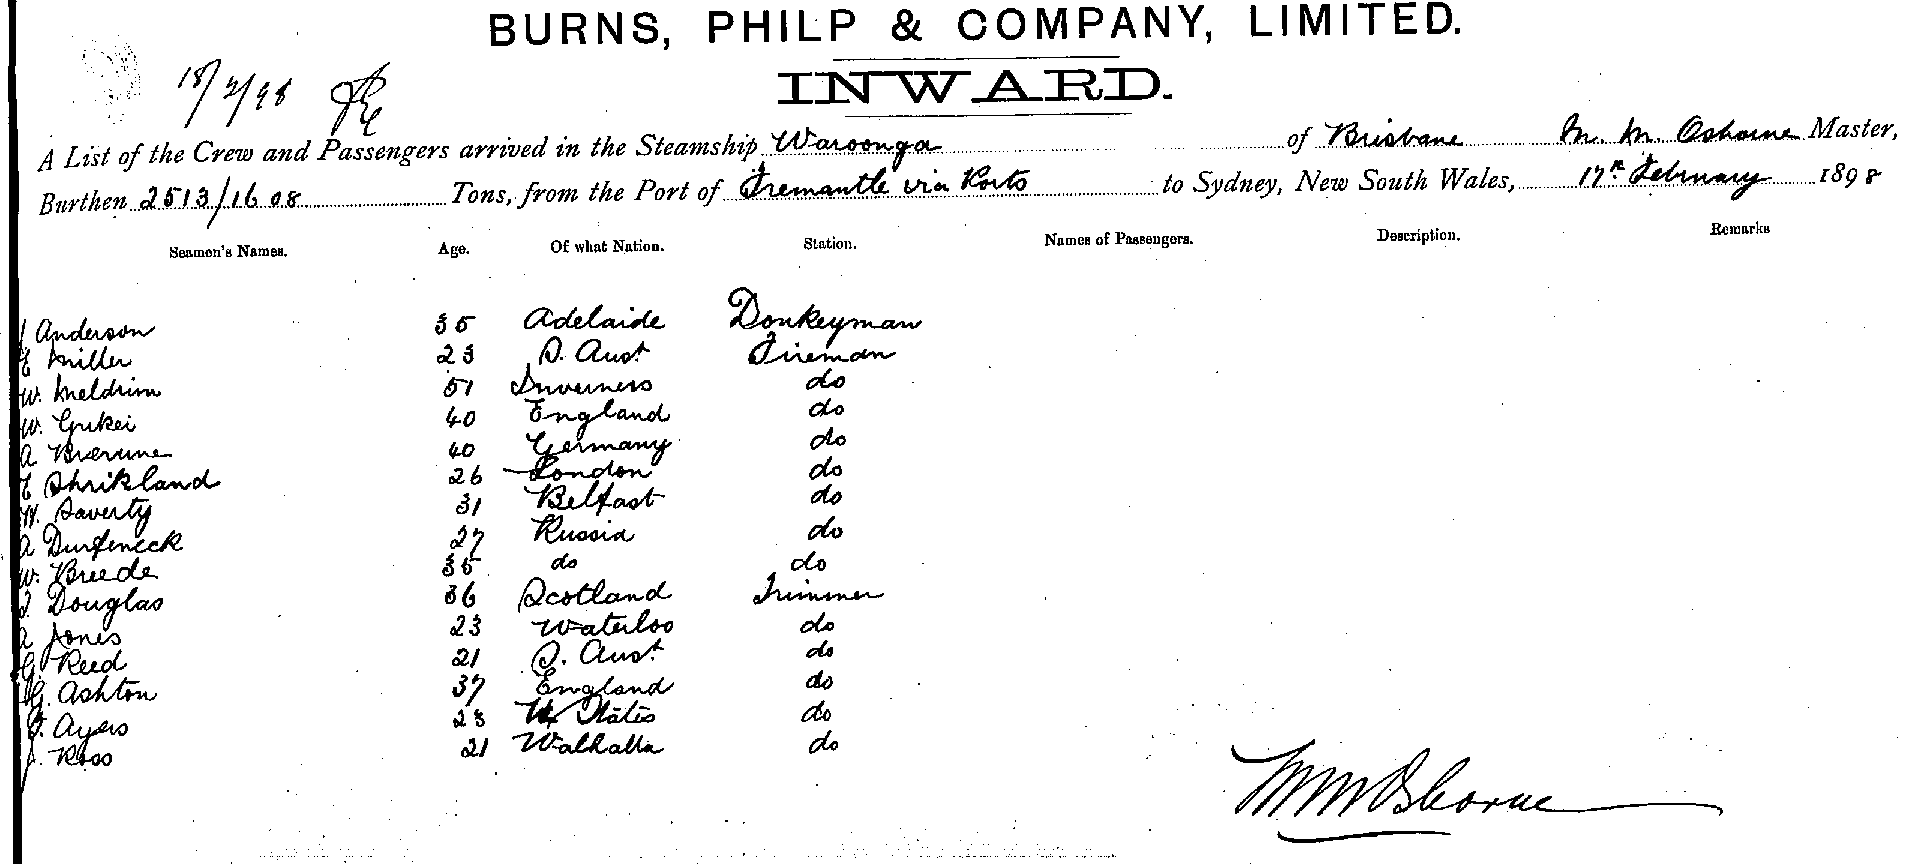 BURNS, PHILP & COMPANY, LIMITED.
INWARD.
18/2/98
A List of the Crew and Passengers arrived in the Steamship Waroonga of Brisbane M. M. Osborne Master,
Burthen 2513/1608 Tons, from the Port of Fremantle via Ports to Sydney, New South Wales, 17th February 1898
Seamen's Names. Age. Of what Nation. Station. Names of Passengers. Description. Remarks
J Anderson 35 Adelaide Donkeyman
E Miller 23 S. Aust Fireman
W. Meldrim 51 Inverness do
W. 40 England do
A 40 Germany do
E Shrikland 26 London do
H. Saverty 31 Belfast do
A Durfeneck 27 Russia do
W. Breede 35 do do
Douglas 36 Scotland Trimmer
A Jones 23 Waterloo do
G. Reed 21 S. Aust do
G. Ashton 37 England do
Ayers 23 States do
J. Ross 21 Walhalla do
M M Osborne